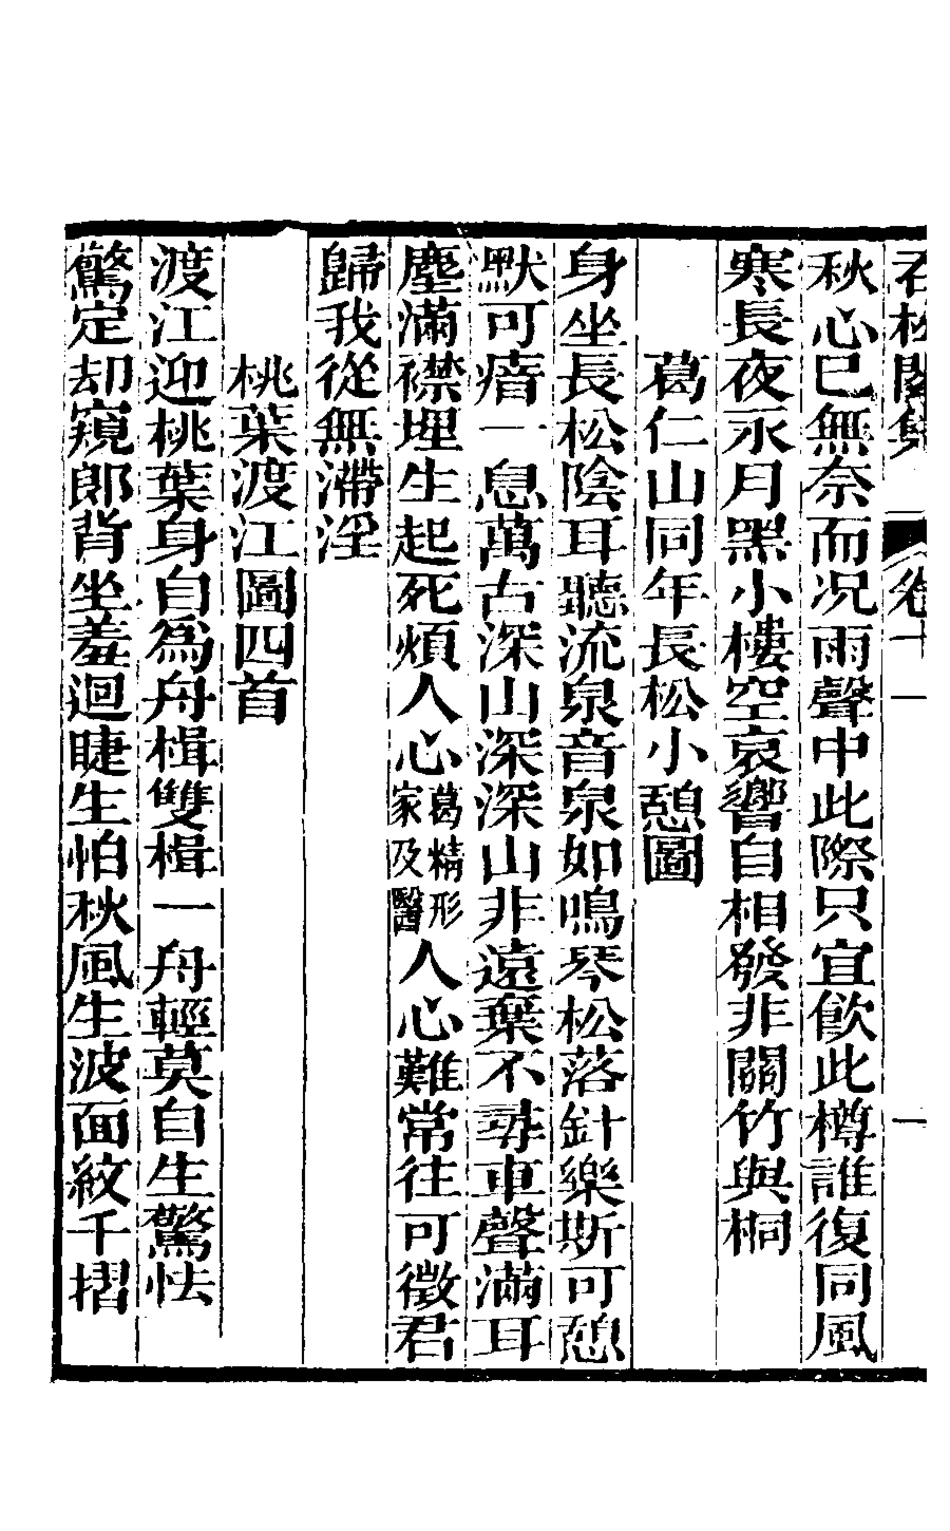 秋心已無奈而况雨聲中此際只宜飮此樽誰復同風
寒長夜永月黑小樓空哀響自相發非關竹與桐
葛仁山同年長松小憩圖
身坐長松陰耳聽流泉音泉如鳴琴松落針樂斯可憩
默可瘖一息萬古深山深深山非遠棄不尋車聲滿耳
塵滿襟埋生起死煩人心葛精形家及醫人心難常往可徵君
歸我從無滯淫
桃葉渡江圖四首
渡江迎桃葉身自爲舟楫雙楫一舟輕莫自生驚怯
驚定却窺郞背坐羞迴睫生怕秋風生波面紋千摺